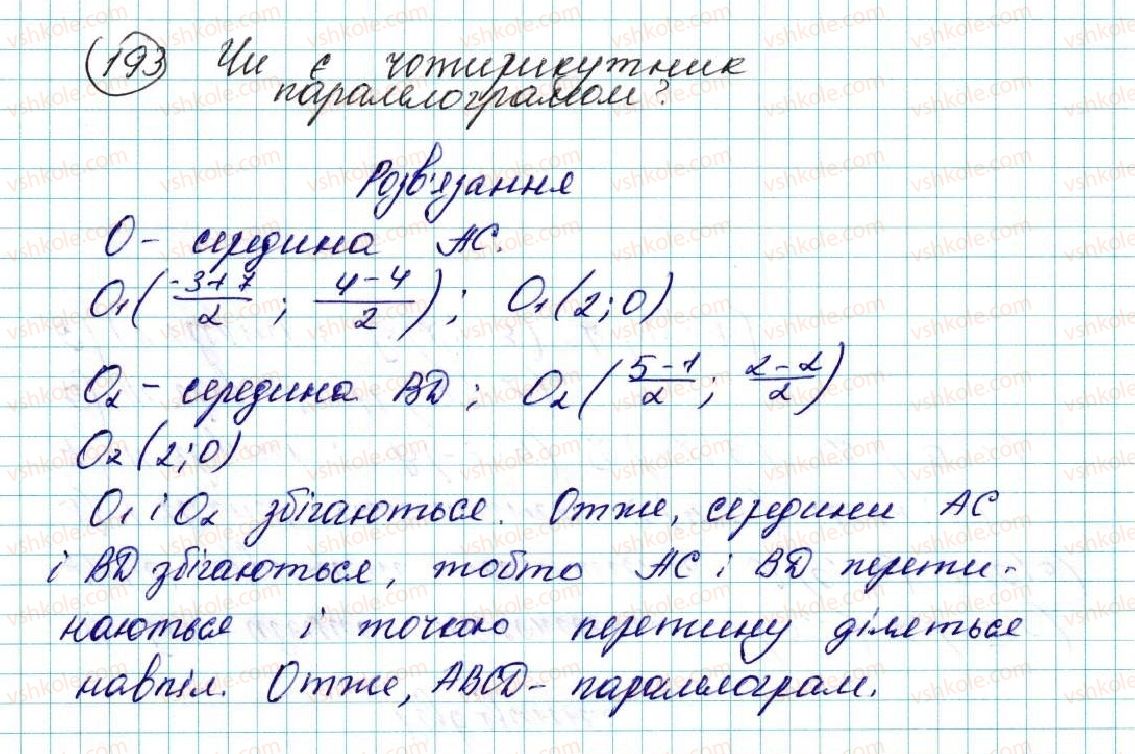 193 Чи є чотирикутник
паралелограмом?
Розв'язання
О - середина АС.
О₁(-3+7/2 ; 4-4/2); О₁(2;0)
О₂ - середина ВD; О₂(5-1/2; 2-2/2)
О₂(2;0)
О₁ і О₂ збігаються. Отже, середини АС
і ВD збігаються, тобто АС і ВD перети-
наються і точкою перетину діляться
навпіл. Отже, ABCD - паралелограм.